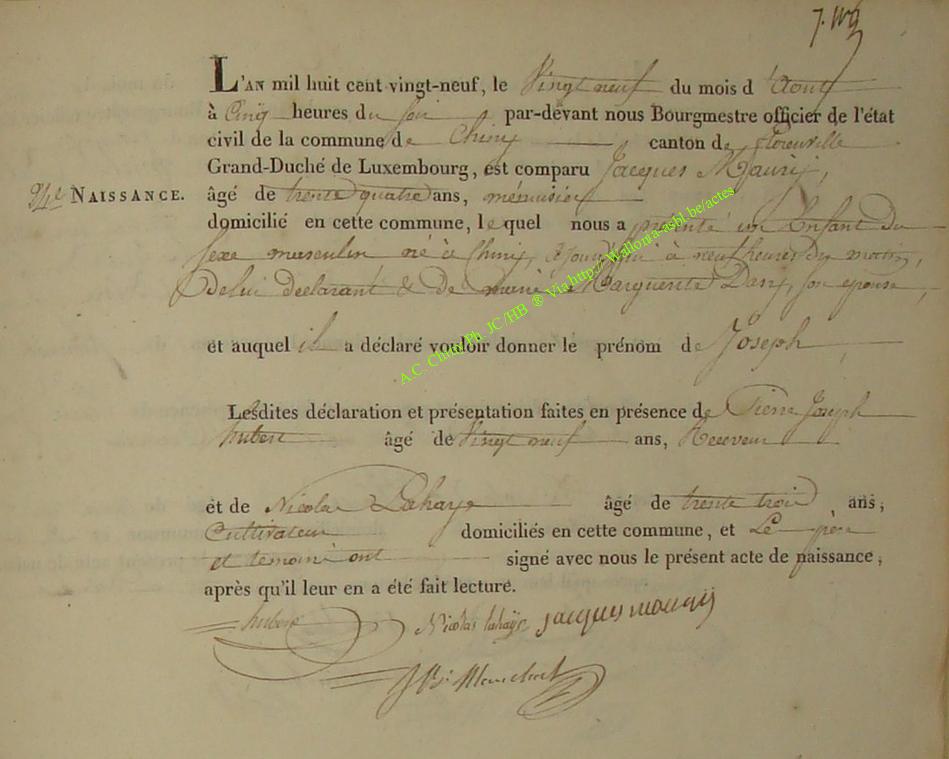 L'AN mil huit cent vingt-neuf, le Vingt neuf du mois d'Aout
à Cinq heures du soir par-devant nous Bourgmestre officier de l'état
civil de la commune de Chiny canton de florenville
Grand-Duché de Luxembourg, est comparu Jacques Maurij,
NAISSANCE. âgé de trente quatre ans, ménuisier
domicilié en cette commune, lequel nous a présenté un Enfant du
sexe masculin né à Chiny, aujourd'hui à neuf heures du matin,
de lui déclarant & de Marguerite Dasy, son épouse,
et auquel il a déclaré vouloir donner le prénom de Joseph
Lesdites déclaration et présentation faites en présence de Pierre Joseph
hubert âgé de Vingt neuf ans, Receveur
et de Nicolas Lahaye âgé de trente trois ans,
Cultivateur domiciliés en cette commune, et Le père
et temoins ont signé avec nous le présent acte de naissance,
après qu'il leur en a été fait lecture.
hubert Nicolas lahaye jacques mourij
A.C. Chiny Ph. JC/HB ® Via http://Wallonia-asbl.be/actes